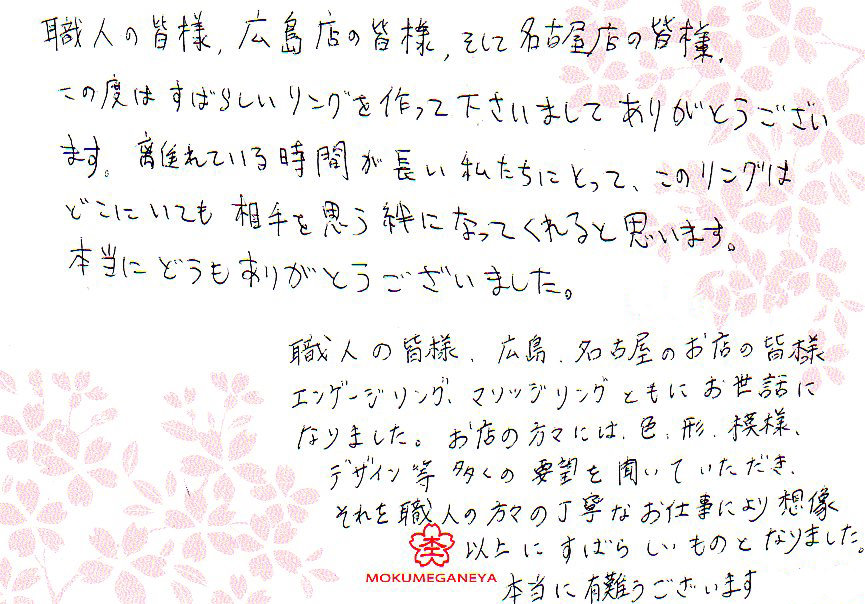 職人の皆様, 広島店の皆様, そして名古屋店の皆様,
この度はすばらしいリングを作って下さいましてありがとうござい
ます。離れている時間が長い私たちにとって、このリングは
どこにいても相手を思う絆になってくれると思います。
本当にどうもありがとうございました。
職人の皆様、広島、名古屋のお店の皆様
エンゲージリング、マリッジリングともにお世話に
なりました。お店の方々には、色、形、模様、
デザイン等多くの要望を聞いていただき、
それを職人の方々の丁寧なお仕事により想像
以上にすばらしいものとなりました。
本当に有難うございます
MOKUMEGANEYA